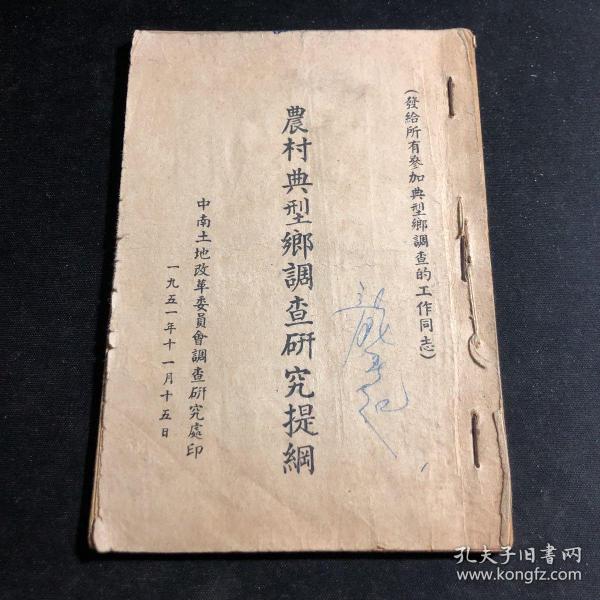 (發給所有參加典型鄉調查的工作同志)
農村典型鄉調查研究提綱
中南土地改革委員會調查研究處印
一九五一年十一月十五日
孔夫子旧书网
www.kongfz.com